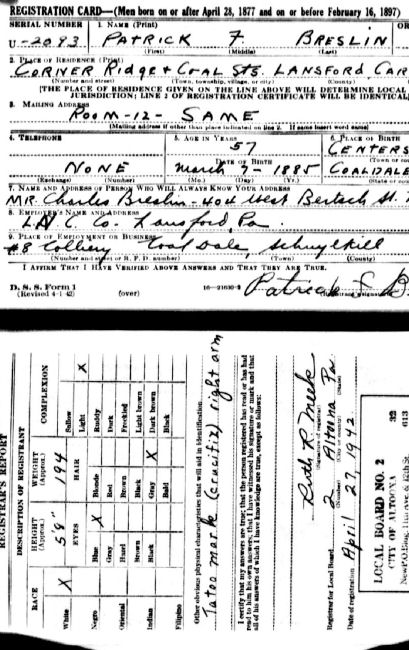 REGISTRATION CARD—(Men born on or after April 28, 1877 and on or before February 16, 1897)
SERIAL NUMBER 1. NAME (Print) OR
U-2093 PATRICK F. BRESLIN
(First) (Middle) (Last)
2. PLACE OF RESIDENCE (Print)
CORNER Ridge + COAL STS. LANSFORD CAR
(Number and street) (Town, township, village, or city) (County)
[THE PLACE OF RESIDENCE GIVEN ON THE LINE ABOVE WILL DETERMINE LOCAL
JURISDICTION; LINE 2 OF REGISTRATION CERTIFICATE WILL BE IDENTICAL]
3. MAILING ADDRESS
ROOM-12- SAME
(Mailing address if other than place indicated on line 2. If same insert word same)
4. TELEPHONE 5. AGE IN YEARS 6. PLACE OF BIRTH
57 CENTERS
DATE OF BIRTH (Town or co
NONE March 7- 1885 COALDALE
(Exchange) (Number) (Mo.) (Day) (Yr.) (State or co
7. NAME AND ADDRESS OF PERSON WHO WILL ALWAYS KNOW YOUR ADDRESS
MR. Charles Breslin - 404 West Bertsch St.
8. EMPLOYER'S NAME AND ADDRESS
L.N.C. Co. Lansford, Pa.
9. PLACE OF EMPLOYMENT OR BUSINESS
#8 Colliery Coal Dale, Schuylkill
(Number and street or R. F. D. number) (Town) (County)
I AFFIRM THAT I HAVE VERIFIED ABOVE ANSWERS AND THAT THEY ARE TRUE.
D. S. S. Form 1
(Revised 4-1-42) (over) 16—21630-2 Patrick F. B
REGISTRAR'S REPORT
DESCRIPTION OF REGISTRANT
RACE HEIGHT (Approx.) WEIGHT (Approx.) COMPLEXION
5 8" 194
EYES HAIR
White X Blue X Blonde Sallow
Light X
Negro Gray Red Ruddy
Dark
Oriental Hazel Brown Freckled
Brown Black Light brown
Indian Black Gray X Dark brown
Filipino Bald Black
Other obvious physical characteristics that will aid in identification
Tatoo mark (crucifix) right arm
I certify that my answers are true; that the person registered has read or has had
read to him his own answers; that I have witnessed his signature or mark and that
all of his answers of which I have knowledge are true, except as follows:
Ruth R Meek
(Signature of registrar)
Registrar for Local Board 2 Altoona Pa.
(Number) (City or county) (State)
Date of registration April 27, 1942
LOCAL BOARD NO. 2 32
CITY OF ALTOONA 013